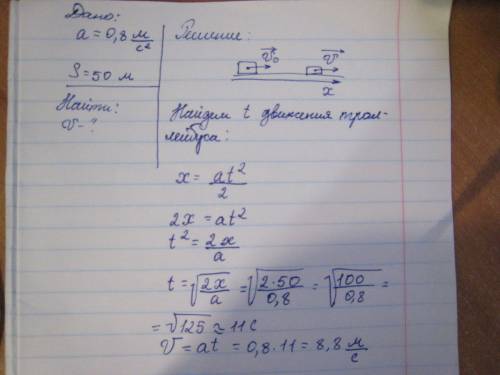 Дано:
a = 0,8 м/с²
S = 50 м
Найти:
v - ?
Решение:
v₀ v
x
Найдем t движения трол-
лейбуса:
x = at²/2
2x = at²
t² = 2x/a
t = √(2x/a) = √(2·50/0,8) = √(100/0,8) =
= √125 ≈ 11 с
v = at = 0,8·11 = 8,8 м/с